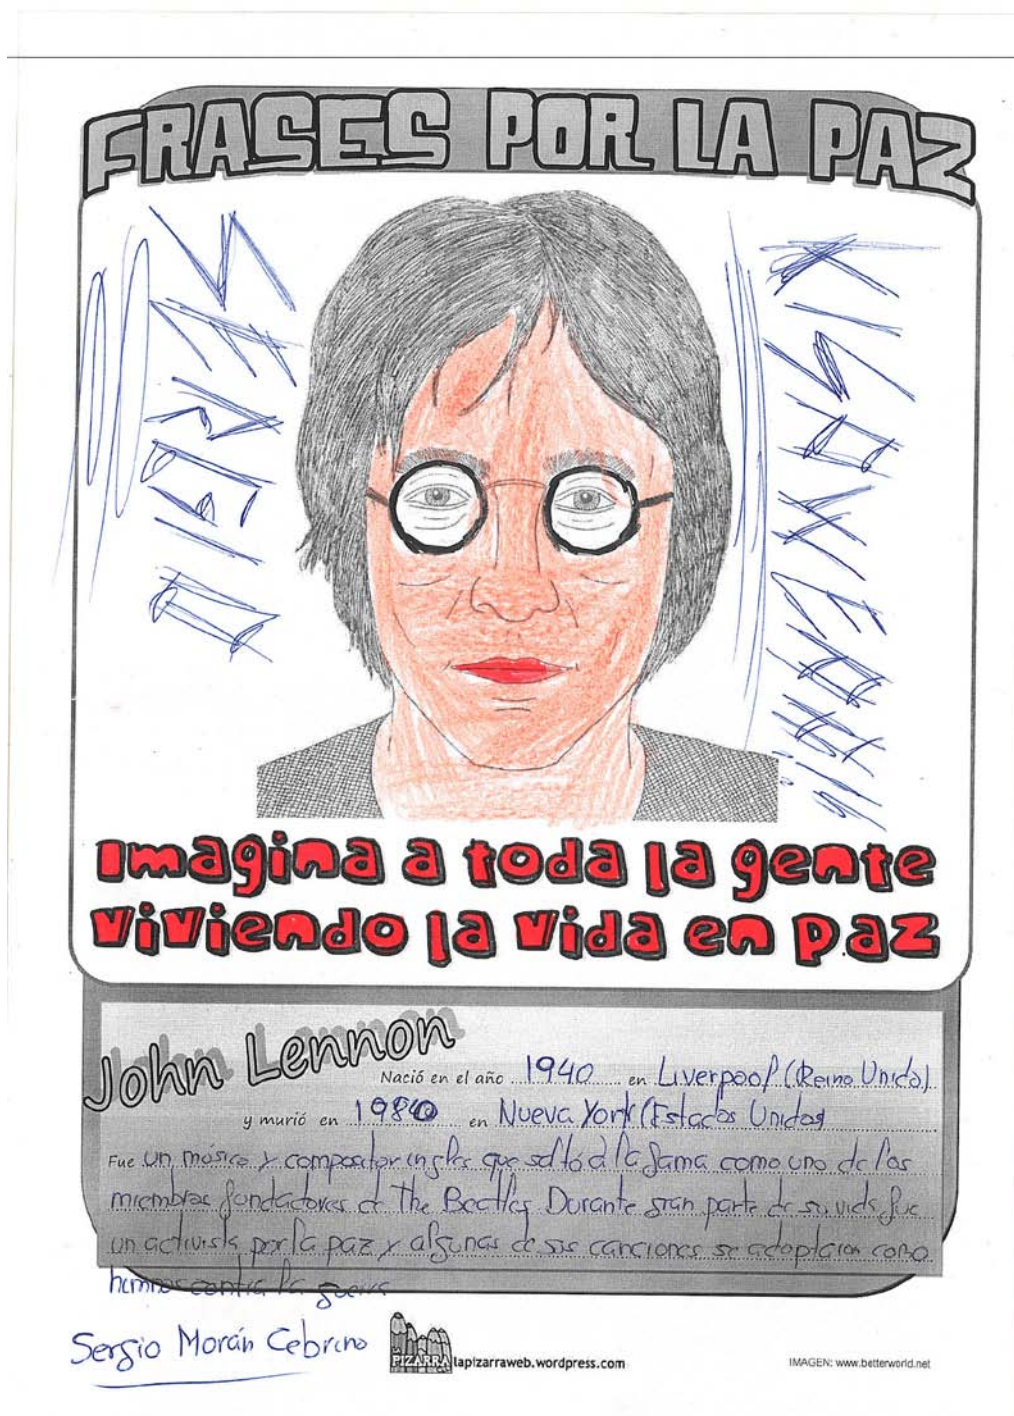 FRASES POR LA PAZ
Imagina a toda la gente
viviendo la vida en paz
John Lennon
Nació en el año 1940 en Liverpool (Reino Unido)
y murió en 1980 en Nueva York (Estados Unidos)
Fue un músico y compositor ingles que saltó a la fama como uno de los
miembros fundadores de The Beatles Durante gran parte de su vida fue
un activista por la paz y algunas de sus canciones se adoptaron como
himnos contra la guerra
Sergio Morán
LA PIZARRA
lapizarraweb.wordpress.com
IMAGEN: www.betterworld.net